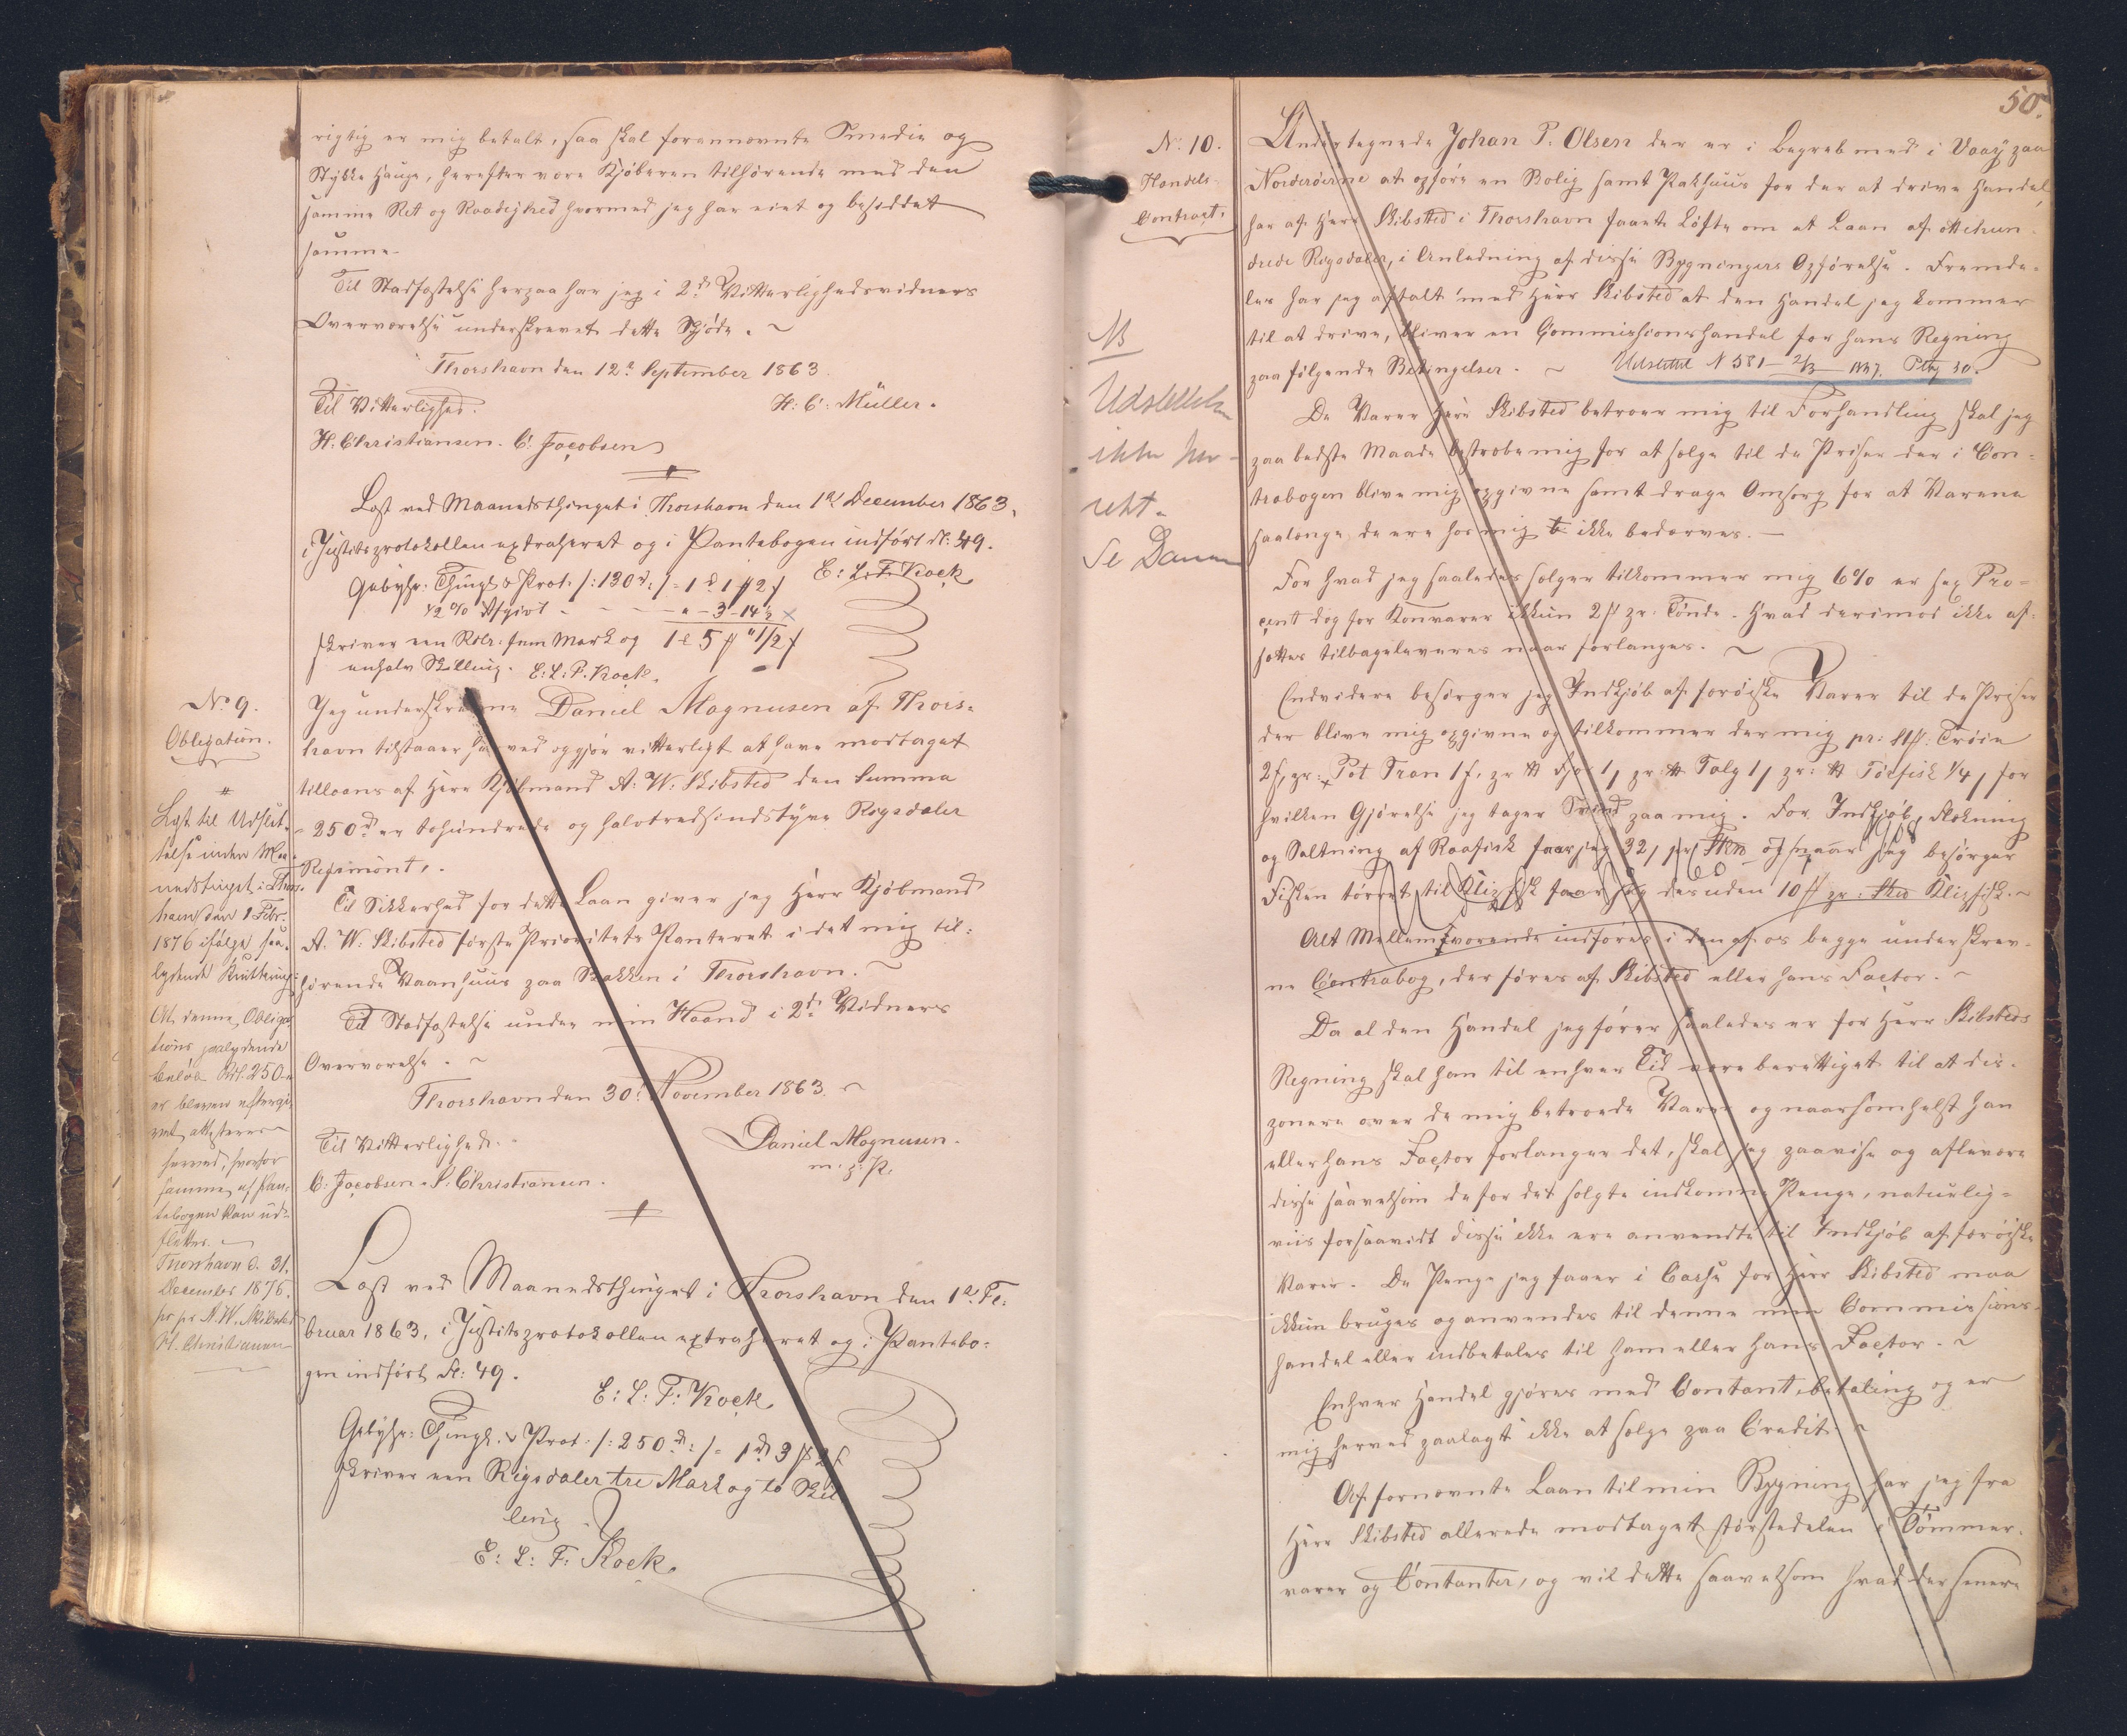 rigtig er mig betalt, saa skal forannævnte Smedie og
Stykke Hauge, herefter være Kjøberen tilhørende med den
samme Ret og Raadighed hvormed jeg har eiet og besiddet
samme.
Til Stadfæstelse herpaa har jeg i 2de Vitterlighedsvidners
Overværelse underskrevet dette Skjøde. ~
Thorshavn den 12te September 1863.
Til Vitterlighed. H: C: Müller.
H. Christiansen. C. Jacobsen
Læst ved Maanedsthinget i Thorshavn den 1ste December 1863,
i Justitsprotokollen extraheret og i Pantebogen indført fl: 49.
E: L: F: Kock
Gebyhr: Thingl. & Prot. /: 130 d: /= 1 d 1 ß 2 f
1/2 % Afgivt - - - " - 3 - 14 1/2
skriver een Rdlr. fem Mark og 1 d 5 ß " 1/2 f
enhalv Skilling. E: L: F. Kock.
No 9.
Obligation.
Jeg underskrevne Daniel Magnusen af Thors=
havn tilstaaer herved og gjør vitterligt at have modtaget
tillaans af Herr Kjøbmand A: W: Skibsted den Summa
250 d er tohundrede og halvtredsindstyve Rigsdaler
Rigsmønt,.
Til Sikkerhed for dette Laan giver jeg Herr Kjøbmand
A. W: Skibsted første Prioritets Panteret i det mig til=
hørende Vaanhuus paa Bakken i Thorshavn. ~
Til Stadfæstelse under min Haand i 2de Vidners
Overværelse. ~
Thorshavn den 30te November 1863. ~
Til Vitterlighed. Daniel Magnusen.
m. p. P.
C: Jacobsen. S. Christiansen.
Læst ved Maanedsthinget i Thorshavn den 1ste Fe=
bruar 1863, i Justitsprotokollen extraheret og i Pantebo=
gen indført fl: 49.
E: L: F: Kock
Gebyhr: Thingl. & Prot. /: 250 d: /= 1 d 3 ß 2 f
skriver een Rigsdaler tre Mark og to Skil
ling
E: L: F: Kock.
Læst til Udslet=
telse inden Maa=
nedstinget i Thors=
havn den 1 Febr.
1876 ifølge saa=
lydende Kvittering:
At denne Obliga=
tions paalydende
Beløb Rdl. 250
er bleven eftergi=
vet attesteres
herved, hvorfor
samme af Pan=
tebogen kan ud=
slettes.
Thorshavn d. 31.
December 1875.
pr pr A. W. Skibsted
H. Christiansen
50.
No. 10.
Handels=
Contract.
NB
Udslettelsen
ikke kor=
rekt.
Undertegnede Johan P. Olsen der er i Begreb med i Vaag paa
Norderøerne at opføre en Bolig samt Pakhuus for der at drive Handel,
har af Herr Skibsted i Thorshavn faaet Løfte om at Laan af ottehun=
drede Rigsdaler, i Anledning af disse Bygningers Opførelse. Fremde=
les har jeg aftalt med Herr Skibsted at den Handel jeg kommer
til at drive, bliver en Commissionshandel for hans Regning
paa følgende Betingelser. ~ Udslettet N 581
De Varer Herr Skibsted betroer mig til Forhandling skal jeg
paa bedste Maade bestræbe mig for at sælge til de Priser der i Con=
trabogen blive mig opgivne samt drage Omsorg for at Varene
saalænge de ere hos mig ikke bedærves. —
For hvad jeg saaledes sælger tilkommer mig 6% er sex Pro=
cent dog for Kornvarer ikkun 2 ß pr: Tønde. Hvad derimod ikke af=
sættes tilbageleveres naar forlanges. ~
Endvidere besørger jeg Indkjøb af færøiske Varer til de Priser
der blive mig opgivne og tilkommer der mig pr: Stk: Trøie
2 f, pr: Pot Tran 1 f, pr ℔ Fjer 1, pr ℔ Talg 1, pr: ℔ Tørfisk 1/4, for
hvilken Gjørelse jeg tager Svind paa mig. For Indkjøb, Flækning
og Saltning af Raafisk faar jeg 32, og naar jeg besørger
Fisken tørret til Klipfisk faar jeg desuden 10 ß pr: Klipfisk. ~
Alt Mellemværende indføres i den af os begge underskrev=
ne Contrabog, der føres af Skibsted eller hans Factor. ~
Da al den Handel jeg fører saaledes er for Herr Skibsteds
Regning skal han til enhver Tid være berettiget til at dis=
ponere over de mig betroede Varer og naarsomhelst han
eller hans Factor forlanger det, skal jeg paavise og aflevere
disse saavelsom de for det solgte indkomne Penge, naturlig=
viis forsaavidt disse ikke ere anvendte til Indkjøb af færøiske
Varer. De Penge jeg faaer i Casse for Herr Skibsted maa
ikkun bruges og anvendes til denne min Commissions=
handel eller indbetales til ham eller hans Factor. ~
Enhver Handel gjøres med Contant betaling og er
mig herved paalagt ikke at sælge paa Credit. ~
Af fornævnte Laan til min Bygning har jeg fra
Herr Skibsted allerede modtaget størstedelen i Tømmer=
varer og Contanter, og vil dette saavelsom hvad der senere